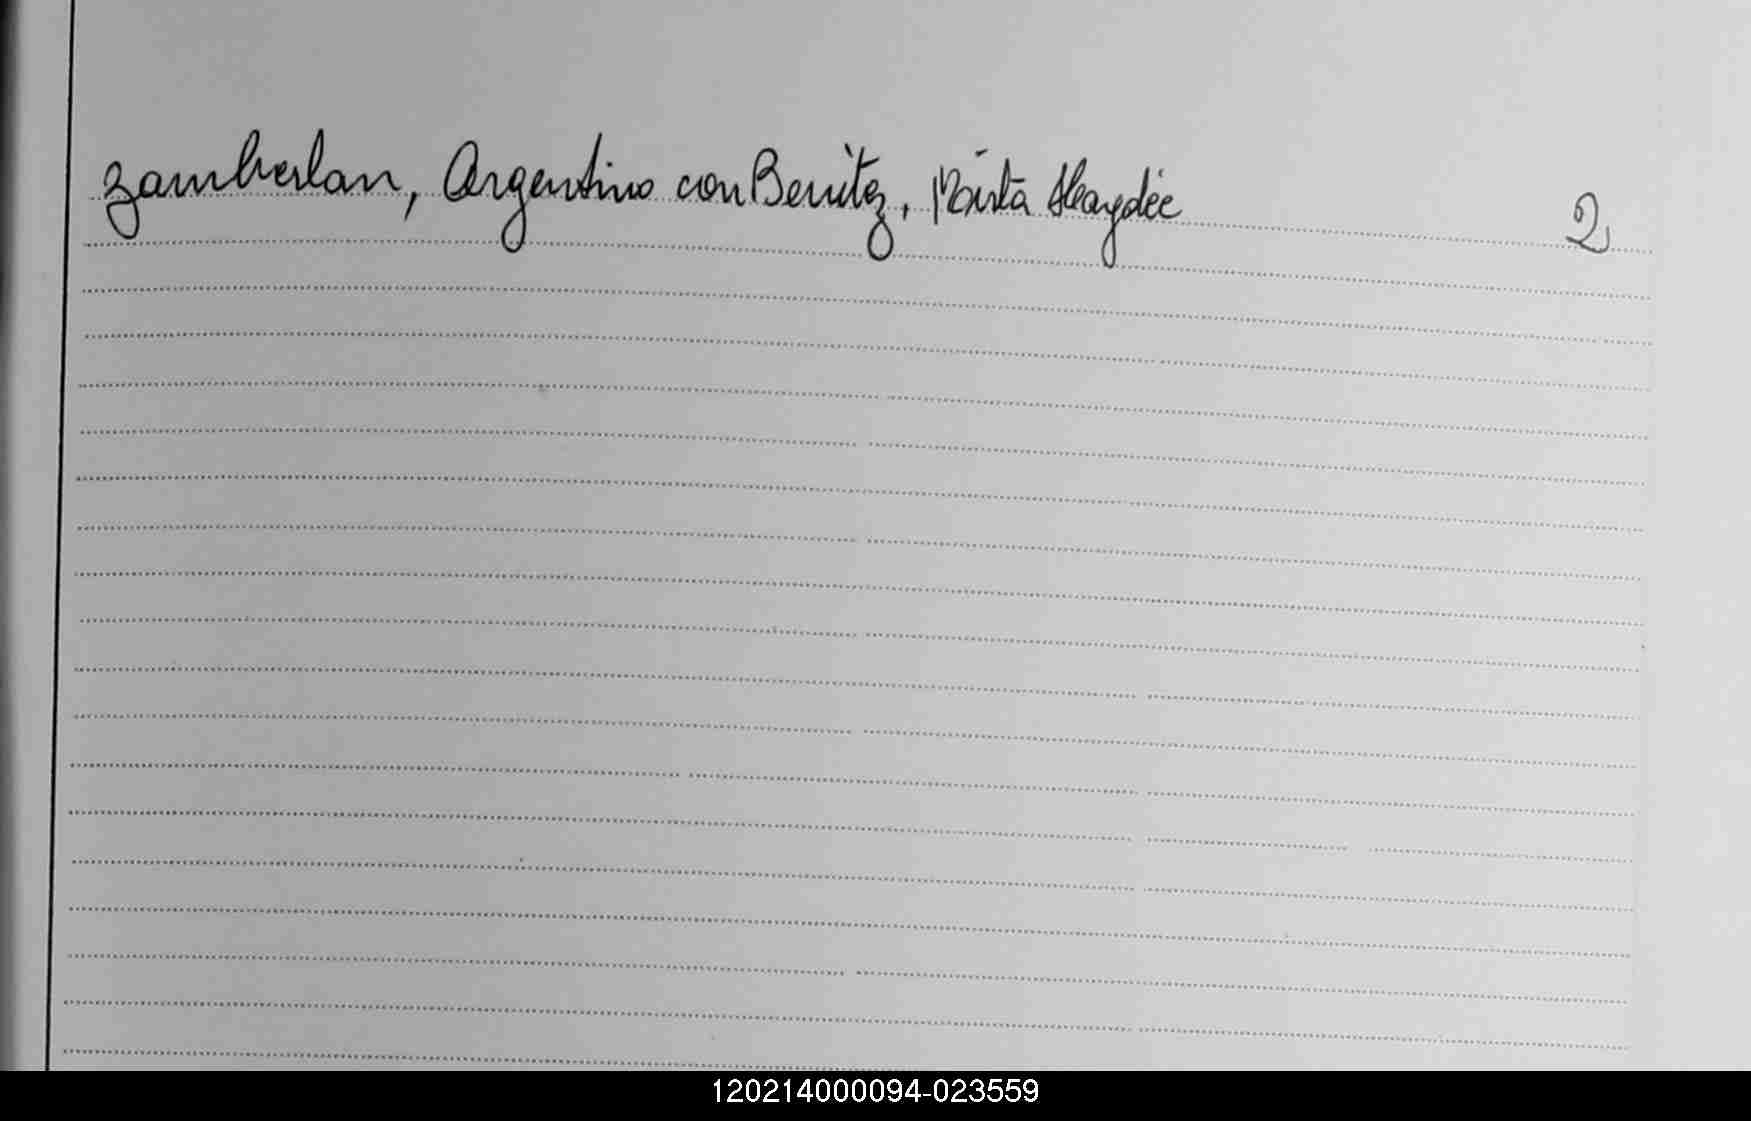 Zamberlan, Argentino con Benitez, Mirta Haydée 2
120214000094-023559